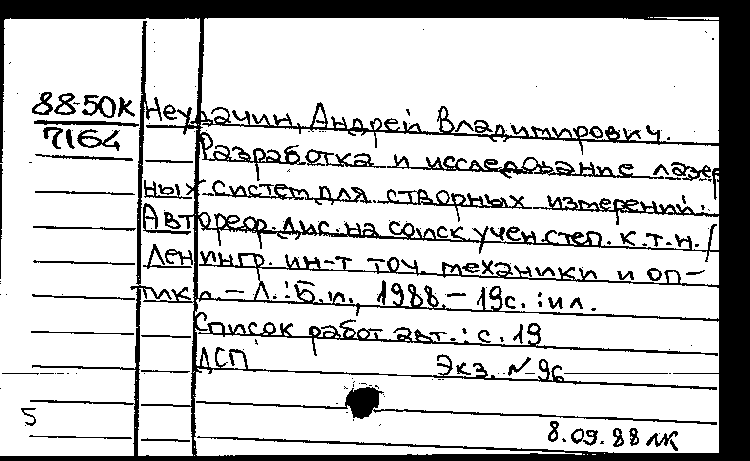 88-50К Неудачин, Андрей Владимирович.
7164 Разработка и исследование лазер
ных систем для створных измерений:
Автореф. дис. на соиск учен. степ. к.т.н. /
Ленингр. ин-т точ. механики и оп-
тики. – Л. : Б.и., 1988. – 19с. : ил.
Список работ авт. : с. 19
ДСП Экз. № 96
5
8.09.88